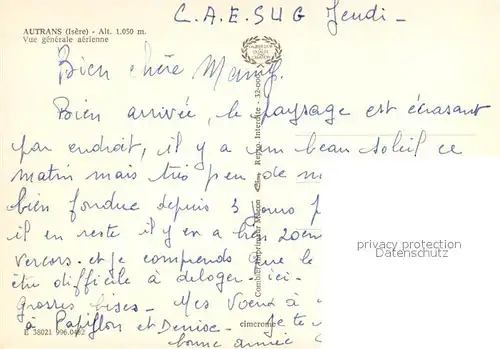 C.A.E.SUG Jeudi -
AUTRANS (Isère) - Alt. 1.050 m.
Vue générale aérienne
Bien chère Mamy.
Bien arrivée, le paysage est écrasant
par endroit, il y a un beau soleil ce
matin mais très peu de
bien fondue depuis 3 jours
il en reste il y en a
Vercors. et je comprends que le
être difficile à deloger. ici.
Grosses bises - Mes Voeux à
à Papillon et Denise. Je te
bonne année
E 38021 996.0482
cimcrome
Combier Imprimeur Mâcon
Repro. Interdite
privacy protection
Datenschutz